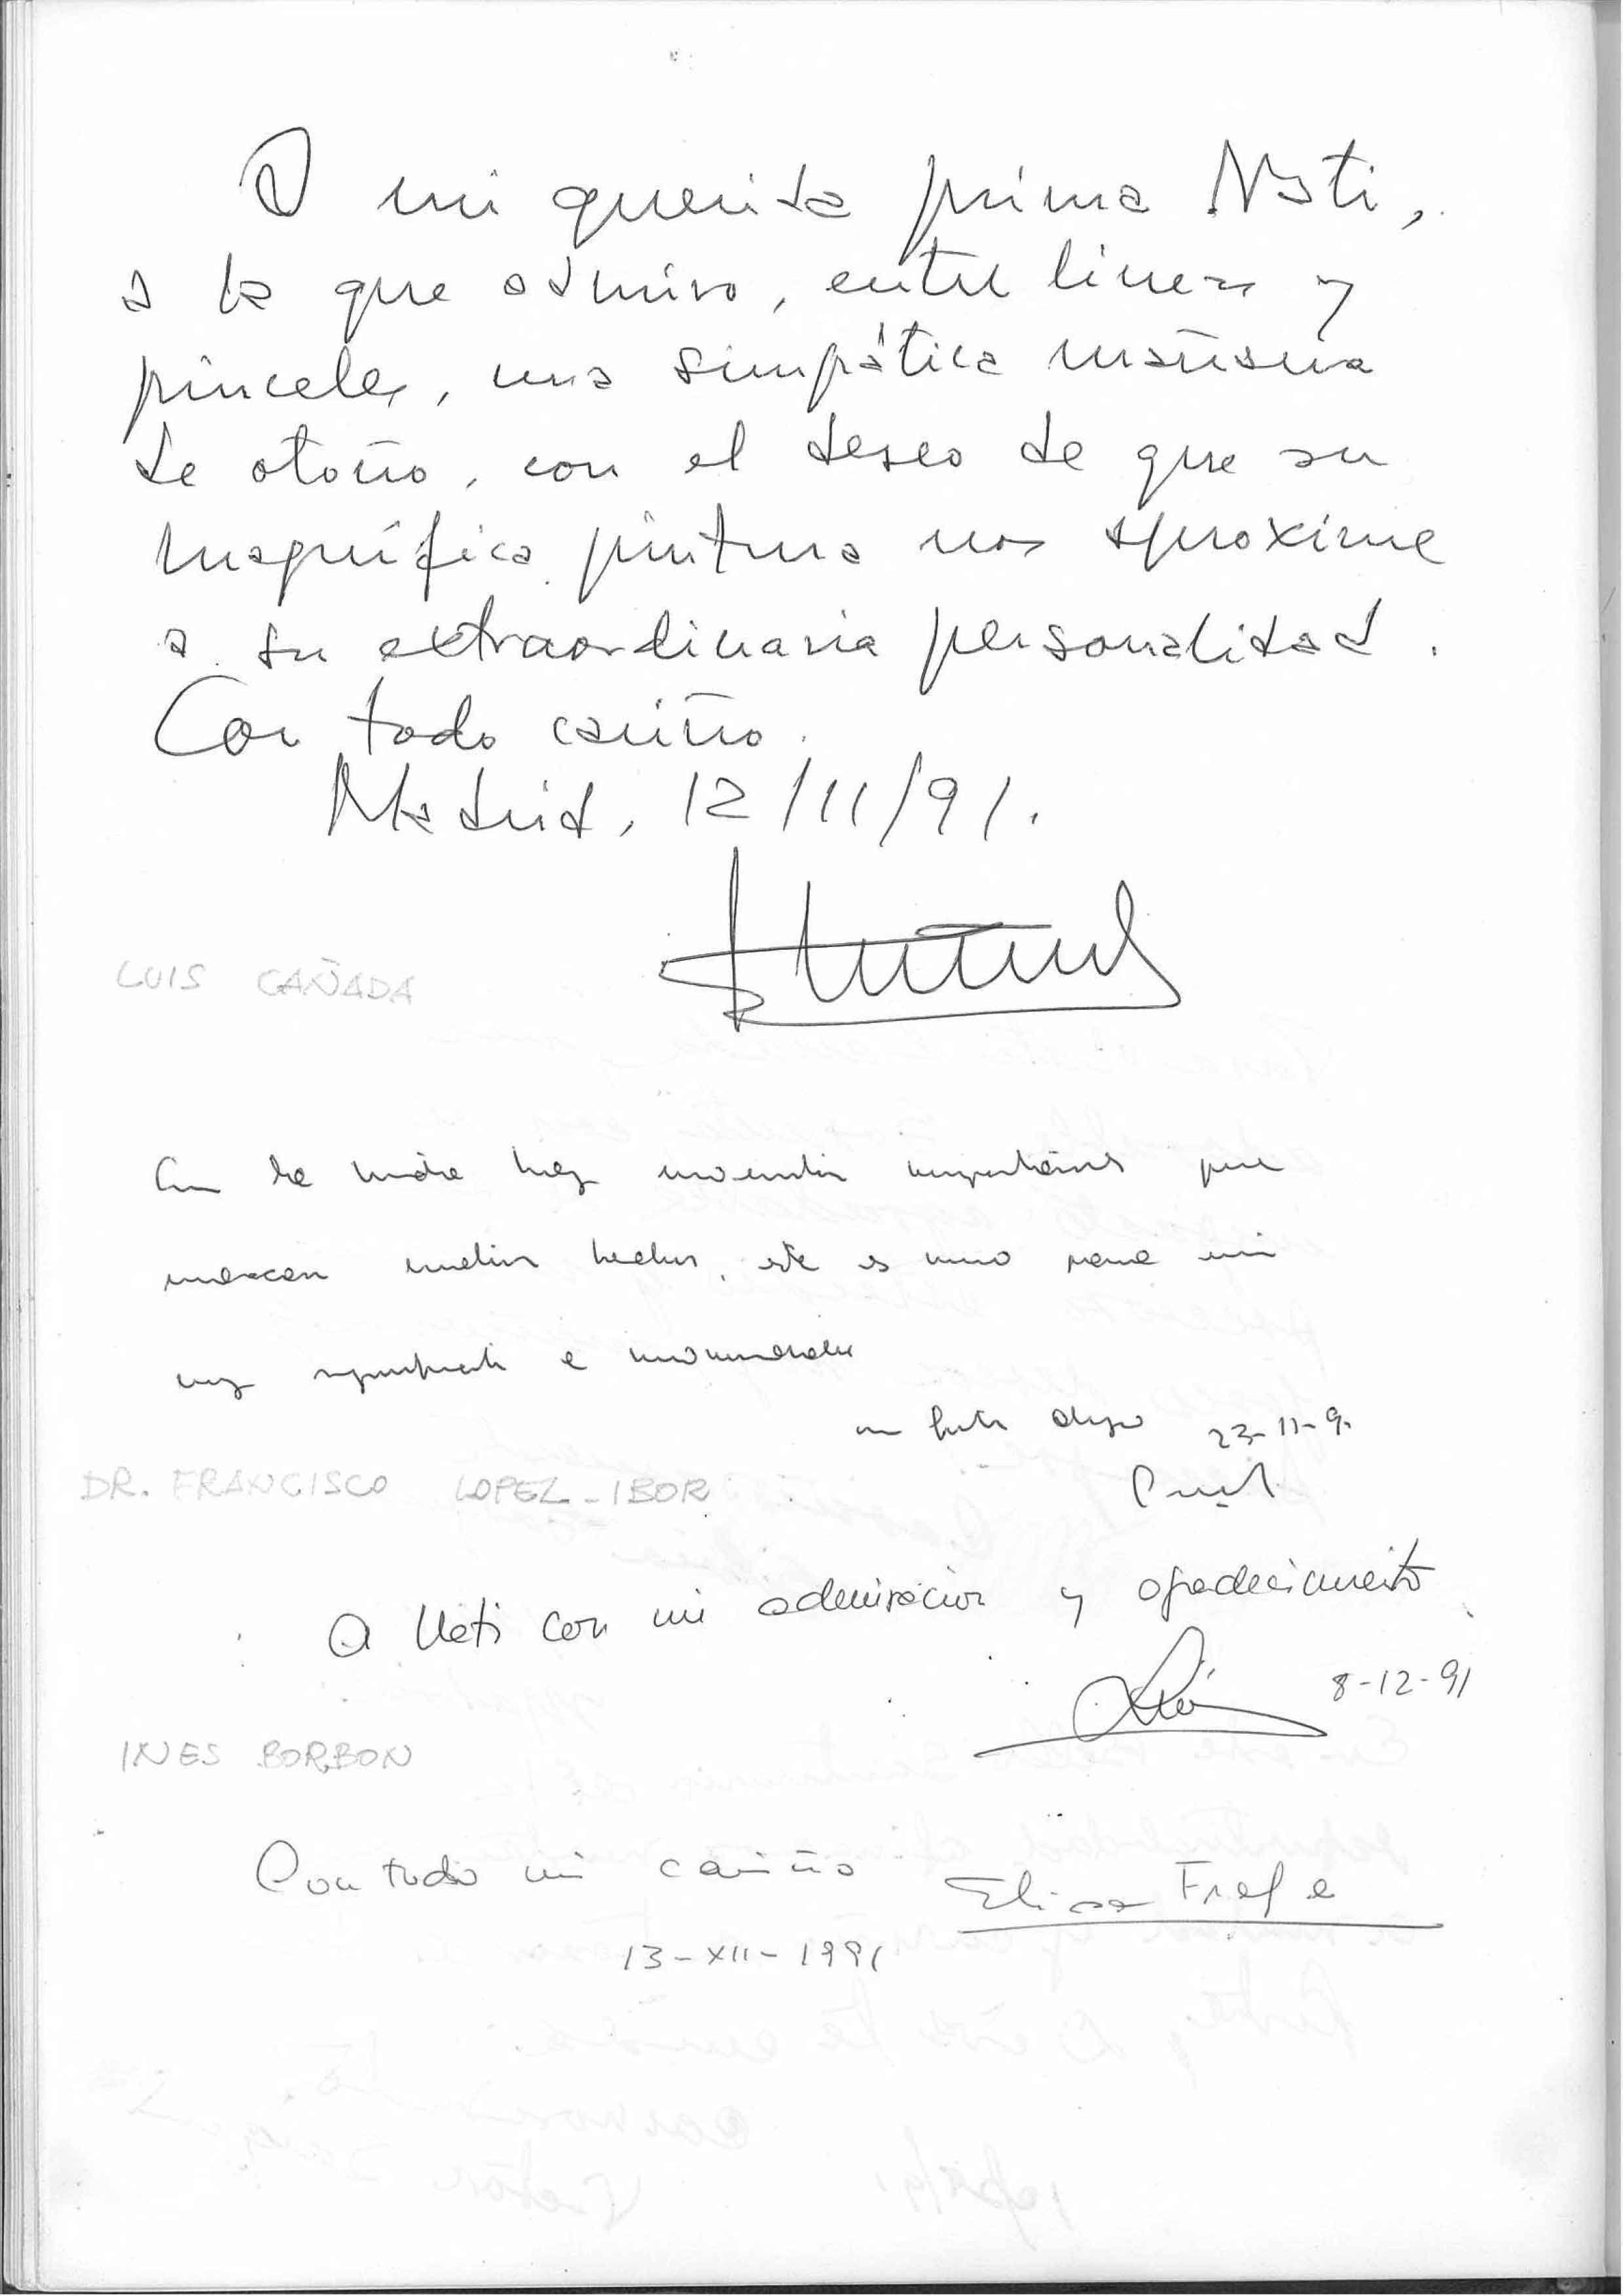 A mi querida prima Nati,
a la que admiro, entre lineas y
pinceles, una simpática mañana
de otoño, con el deseo de que su
magnífica pintura nos aproxime
a su extraordinaria personalidad.
Con todo cariño.
Madrid, 12/11/91.
LUIS CAÑADA
En la vida hay momentos importantes que
marcan muchos hechos, este es uno para mi
muy importante e
un fuerte abrazo 23-11-9.
DR. FRANCISCO LOPEZ-IBOR
A Nati con mi admiración y agradecimiento
8-12-91
INES BORBON
Con todo mi cariño Elisa
13-XII-1991